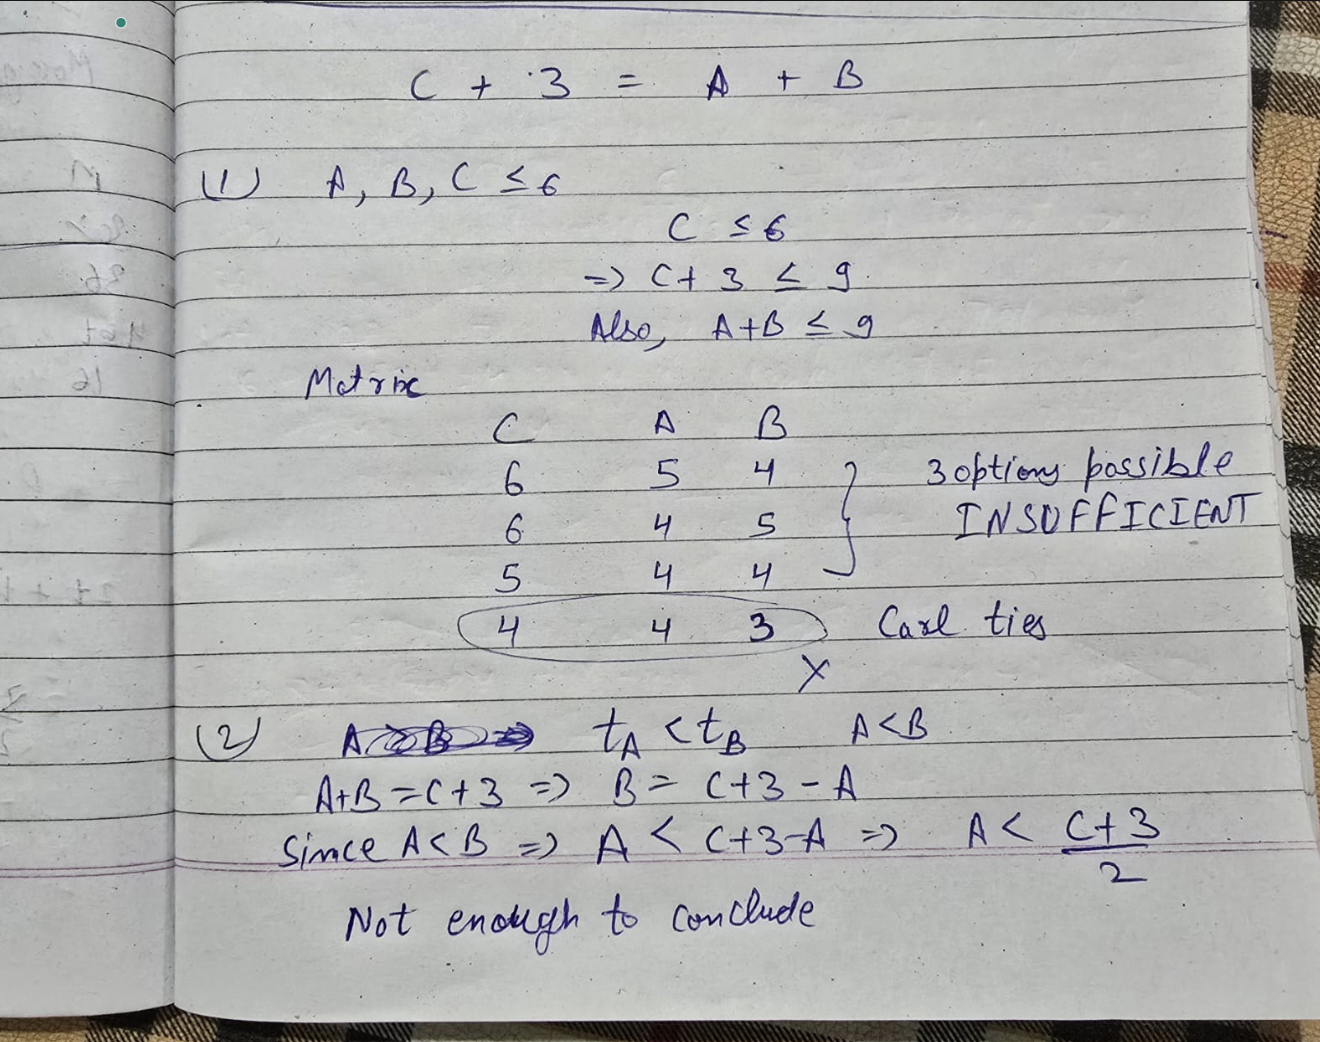 C + 3 = A + B
(1) A, B, C ≤ 6
C ≤ 6
=> C + 3 ≤ 9
Also, A+B ≤ 9
Matrix
C A B
6 5 4
6 4 5
5 4 4
3 options possible
INSUFFICIENT
4 4 3 Carl ties
X
(2) tA < tB A<B
A+B = C+3 => B = C+3 - A
Since A<B => A < C+3-A => A < C+3/2
Not enough to conclude